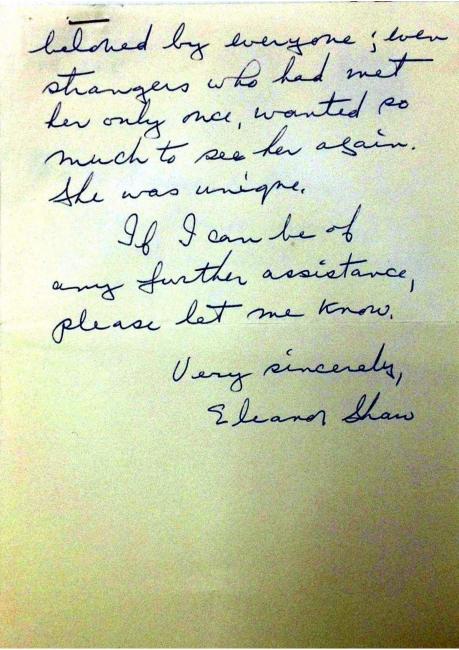 beloved by everyone; even
strangers who had met
her only once, wanted so
much to see her again.
She was unique.
If I can be of
any further assistance,
please let me know.
Very sincerely,
Eleanor Shaw